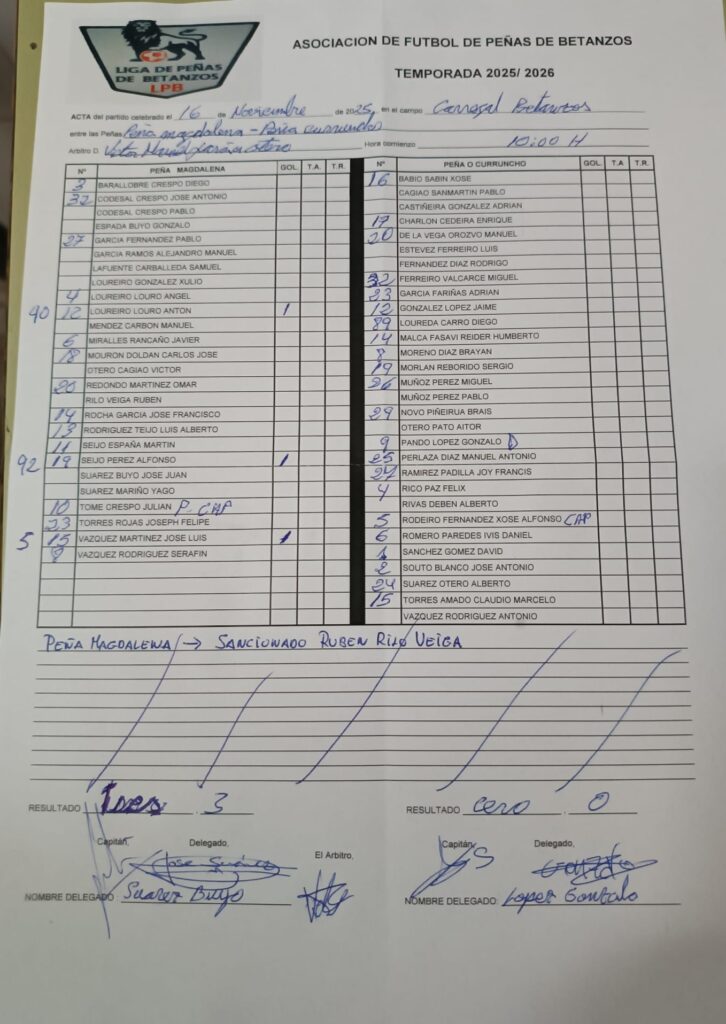 LIGA DE PEÑAS
DE BETANZOS
LPB
ASOCIACION DE FUTBOL DE PEÑAS DE BETANZOS
TEMPORADA 2025/ 2026
ACTA del partido celebrado el 16 de Noviembre de 2025, en el campo Carregal Betanzos
entre las Peñas Peña magdalena - Peña curruncho
Arbitro D. Hora comienzo 10:00 H
Nº PEÑA MAGDALENA GOL T.A. T.R.
3 BARALLOBRE CRESPO DIEGO
32 CODESAL CRESPO JOSE ANTONIO
CODESAL CRESPO PABLO
ESPADA BUYO GONZALO
27 GARCIA FERNANDEZ PABLO
GARCIA RAMOS ALEJANDRO MANUEL
LAFUENTE CARBALLEDA SAMUEL
LOUREIRO GONZALEZ XULIO
4 LOUREIRO LOURO ANGEL
90 12 LOUREIRO LOURO ANTON 1
MENDEZ CARBON MANUEL
6 MIRALLES RANCAÑO JAVIER
18 MOURON DOLDAN CARLOS JOSE
OTERO CAGIAO VICTOR
20 REDONDO MARTINEZ OMAR
RILO VEIGA RUBEN
14 ROCHA GARCIA JOSE FRANCISCO
13 RODRIGUEZ TEIJO LUIS ALBERTO
11 SEIJO ESPAÑA MARTIN
92 19 SEIJO PEREZ ALFONSO 1
SUAREZ BUYO JOSE JUAN
SUAREZ MARIÑO YAGO
10 TOME CRESPO JULIAN P. CAP
23 TORRES ROJAS JOSEPH FELIPE
5 15 VAZQUEZ MARTINEZ JOSE LUIS 1
VAZQUEZ RODRIGUEZ SERAFIN
Nº PEÑA O CURRUNCHO GOL T.A T.R.
16 BABIO SABIN XOSE
CAGIAO SANMARTIN PABLO
CASTIÑEIRA GONZALEZ ADRIAN
17 CHARLON CEDEIRA ENRIQUE
20 DE LA VEGA OROZVO MANUEL
ESTEVEZ FERREIRO LUIS
FERNANDEZ DIAZ RODRIGO
32 FERREIRO VALCARCE MIGUEL
23 GARCIA FARIÑAS ADRIAN
12 GONZALEZ LOPEZ JAIME
89 LOUREDA CARRO DIEGO
14 MALCA FASAVI REIDER HUMBERTO
8 MORENO DIAZ BRAYAN
19 MORLAN REBORIDO SERGIO
26 MUÑOZ PEREZ MIGUEL
MUÑOZ PEREZ PABLO
29 NOVO PIÑEIRUA BRAIS
OTERO PATO AITOR
9 PANDO LOPEZ GONZALO D
25 PERLAZA DIAZ MANUEL ANTONIO
RAMIREZ PADILLA JOY FRANCIS
4 RICO PAZ FELIX
RIVAS DEBEN ALBERTO
5 RODEIRO FERNANDEZ XOSE ALFONSO CAP
6 ROMERO PAREDES IVIS DANIEL
1 SANCHEZ GOMEZ DAVID
2 SOUTO BLANCO JOSE ANTONIO
24 SUAREZ OTERO ALBERTO
15 TORRES AMADO CLAUDIO MARCELO
VAZQUEZ RODRIGUEZ ANTONIO
PEÑA MAGDALENA → SANCIONADO RUBEN RILO VEIGA
RESULTADO Tres . 3
RESULTADO cero . 0
Capitán, Delegado, El Arbitro,
Capitán, Delegado,
Jose Suárez
NOMBRE DELEGADO: Suarez Buyo
NOMBRE DELEGADO: Lopez Gonzalo